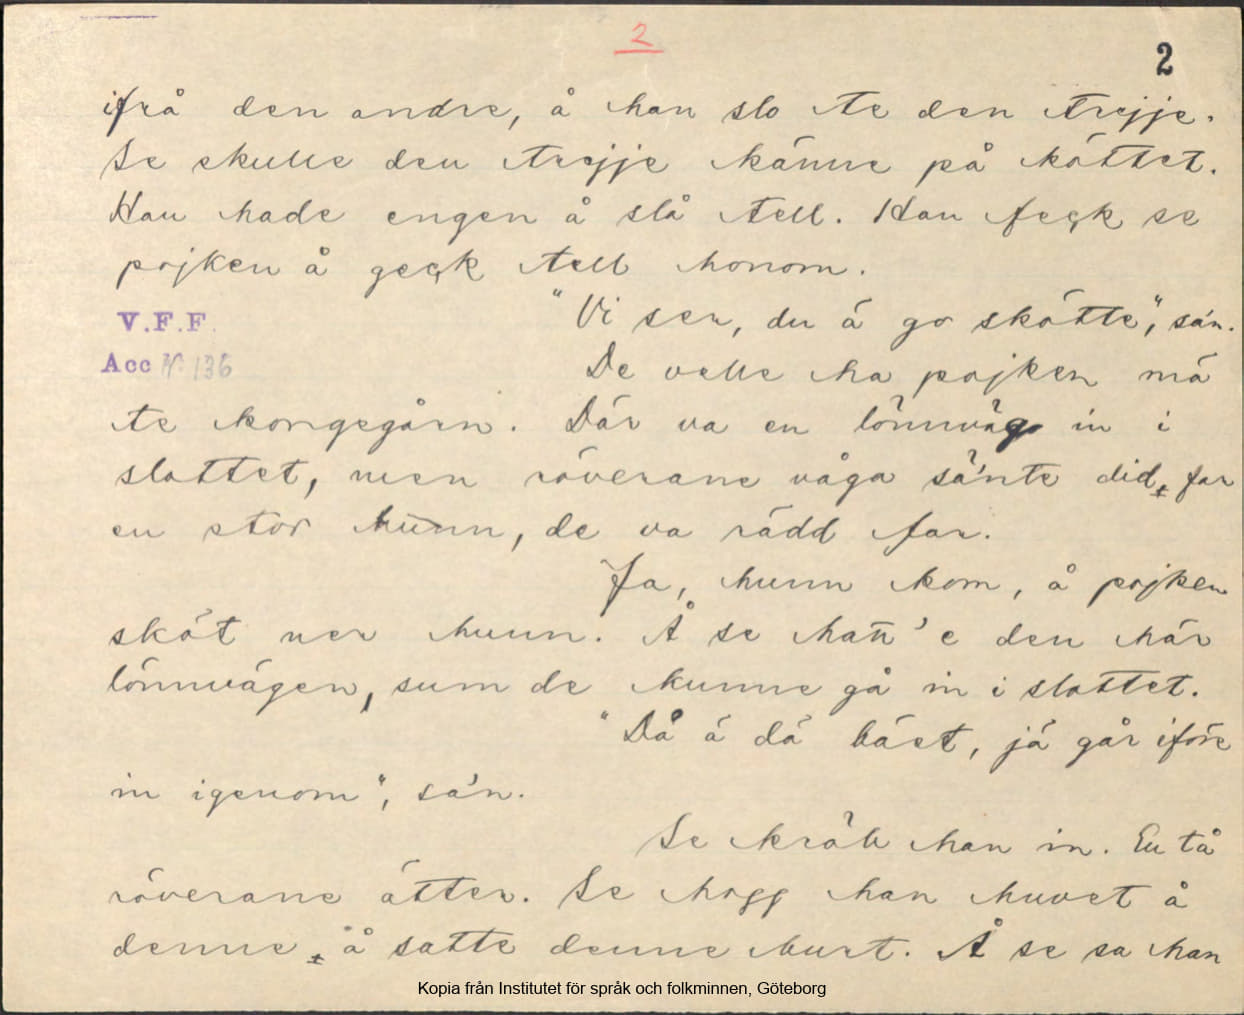 2
2
ifrå den andre, å han slo te den trejje.
Se skulle den trejje känne på köttet.
Han hade engen å slå tell. Han feck se
pojken å geck tell honom.
V.F.F.
"Vi ser, du ä go skötte", sa'n.
Acc Nr 136
De velle ha pojken mä
te kongegårn. Där va en lönnväg in i
slottet, men röverane våga sä'nte did, for
en stor hunn, de va rädd for.
Ja, hunn kom, å pojken
sköt ner hunn. Å se han' e den här
lönnvägen, sum de kunne gå in i slottet.
"Då ä dä bäst, jä går iföre
in igenom", sa'n.
Se kröb han in. En tå
röverane ätter. Se hogg han huvet å
denne, å satte denne burt. Å se sa han
Kopia från Institutet för språk och folkminnen, Göteborg